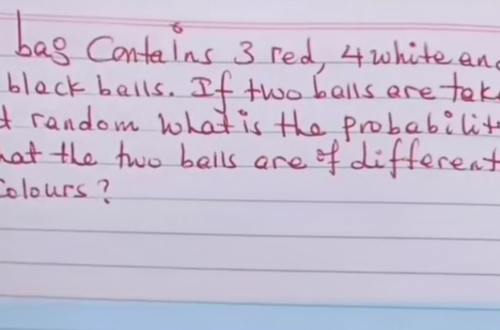 bag Contains 3 red, 4 white an
black balls. If two balls are tak
t random what is the probabilit
hat the two balls are of different
Colours?